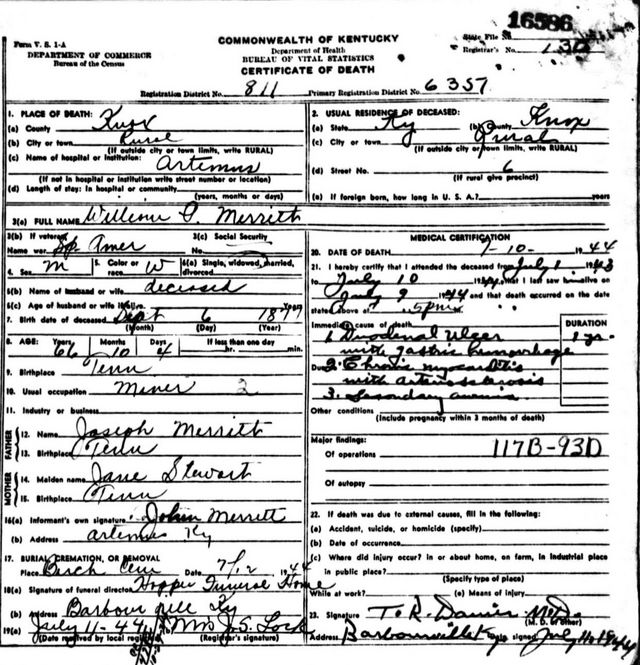 16586
COMMONWEALTH OF KENTUCKY
Form V. S. 1-A
DEPARTMENT OF COMMERCE
Bureau of the Census
Department of Health
BUREAU OF VITAL STATISTICS
CERTIFICATE OF DEATH
State File No.
Registrar's No.
Registration District No. 811
Primary Registration District No. 6357
1. PLACE OF DEATH:
(a) County Knox
(b) City or town Rural
(If outside city or town limits, write RURAL)
(c) Name of hospital or institution: Artemus
(If not in hospital or institution write street number or location)
(d) Length of stay: In hospital or community
(years, months or days)
2. USUAL RESIDENCE OF DECEASED:
(a) State Ky (b) County Knox
(c) City or town Rural
(If outside city or town limits, write RURAL)
(d) Street No. 6
(If rural give precinct)
(e) If foreign born, how long in U. S. A.? years
3(a) FULL NAME Merritt
3(b) If veteran Name war Sp. Amer 3(c) Social Security
4. Sex M 5. Color or race W 6(a) Single, widowed, married, divorced
6(b) Name of husband or wife deceased
6(c) Age of husband or wife if alive Years
7. Birth date of deceased Sept 6
(Month) (Day) (Year)
8. AGE: Years 66 Months 10 Days 4 If less than one day
hr. min.
9. Birthplace Tenn
10. Usual occupation Miner 2
11. Industry or business
FATHER
12. Name Joseph Merritt
13. Birthplace Tenn
MOTHER
14. Maiden name Jane Stewart
15. Birthplace Tenn
16(a) Informant's own signature John Merritt
(b) Address Artemus Ky
17. BURIAL, CREMATION, OR REMOVAL
Place Birch Cem Date 7/12 1944
18(a) Signature of funeral director Hopper Funeral Home
(b) Address Barbourville Ky
19(a) July 11-44 Mrs J. S. Lock
(Date received by local registrar) (Registrar's signature)
MEDICAL CERTIFICATION
20. DATE OF DEATH 7-10- 1944
21. I hereby certify that I attended the deceased from July 1 1943
to July 10 1944, that I last saw him alive on
July 9 1944 and that death occurred on the date
above at 5 pm
Immediate cause of death DURATION
1. Duodenal Ulcer
with gastric hemorrhage
Due 2. Chronic myocarditis
with arteriosclerosis
3. Secondary anemia
Other conditions
(Include pregnancy within 3 months of death)
Major findings: 117B-93D
Of operations
Of autopsy
22. If death was due to external causes, fill in the following:
(a) Accident, suicide, or homicide (specify)
(b) Date of occurrence
(c) Where did injury occur? in or about home, on farm, in industrial place
in public place?
(Specify type of place)
While at work? (e) Means of injury
23. Signature T. R. Davis M.D.
(M. D. or other)
Address Barbourville Ky Date signed July 11 1944